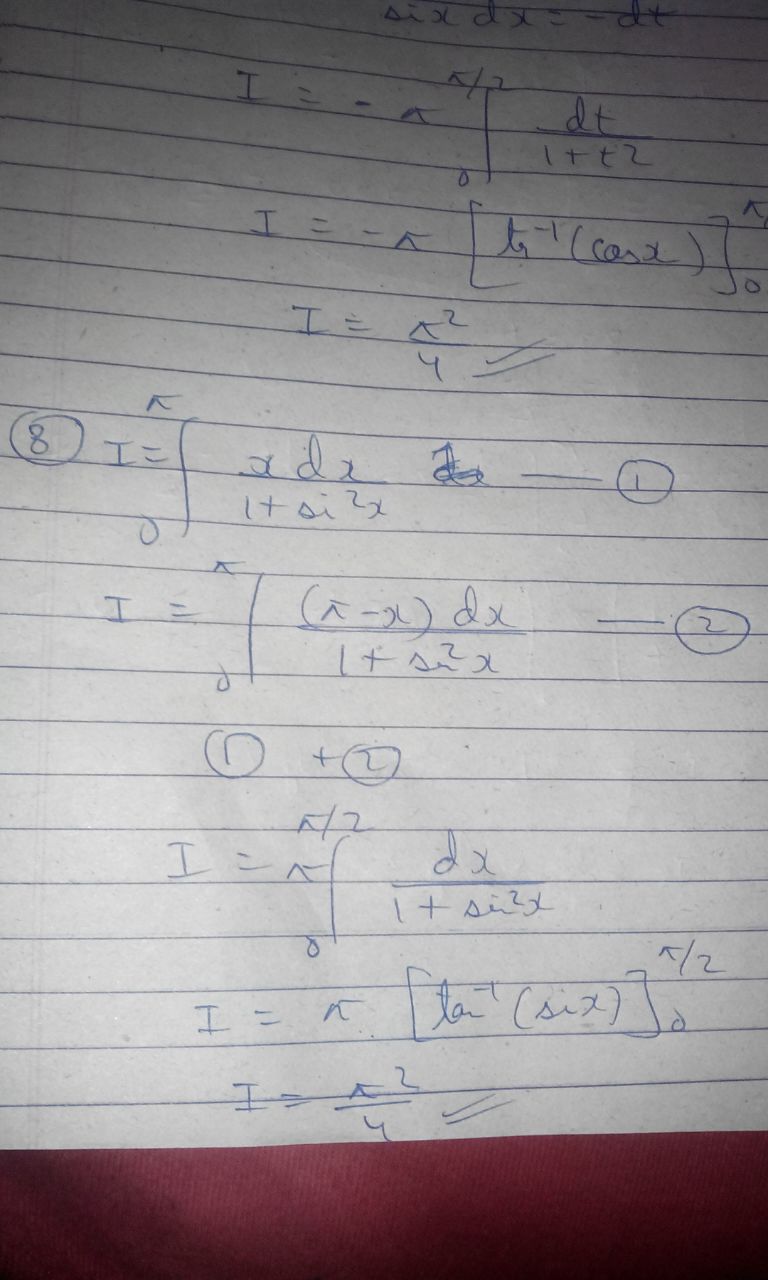 six dx = - dt
I = - π ∫₀^π/2 dt / 1+t2
I = - π [tn⁻¹(cosx)]₀^π/
I = π² / 4
⑧ I = ∫₀^π x dx / 1+si²x — ①
I = ∫₀^π (π-x) dx / 1+sin²x — ②
① + ②
I = π ∫₀^π/2 dx / 1+sin²x
I = π [tan⁻¹(six)]₀^π/2
I = π² / 4